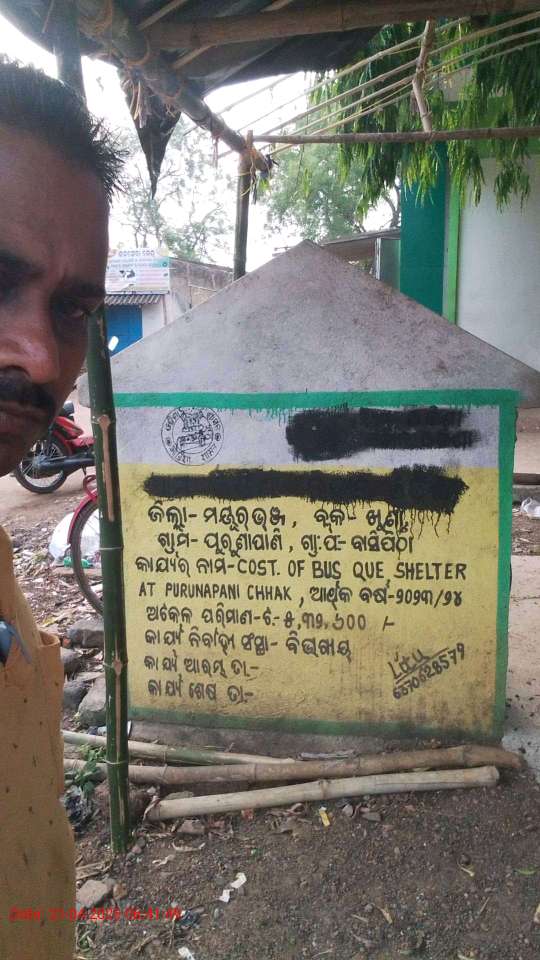 ଜିଲ୍ଲା- ମୟୂରଭଞ୍ଜ, ବ୍ଲକ- ଖୁଣ୍ଟା
ଗ୍ରାମ- ପୁରୁଣାପାଣି, ଗ୍ରା.ପ-
କାର୍ଯ୍ୟର ନାମ-COST. OF BUS QUE SHELTER
AT PURUNAPANI CHHAK, ଆର୍ଥିକ ବର୍ଷ-୨୦୨୩/୨୪
ଅଟକଳ ପରିମାଣ-ଟ.-୫,୩୨,୬୦୦ /-
କାର୍ଯ୍ୟ ନିର୍ବାହୀ ସଂସ୍ଥା- ବିଭାଗୀୟ
କାର୍ଯ୍ୟ ଆରମ୍ଭ ତା.-
କାର୍ଯ୍ୟ ଶେଷ ତା.-